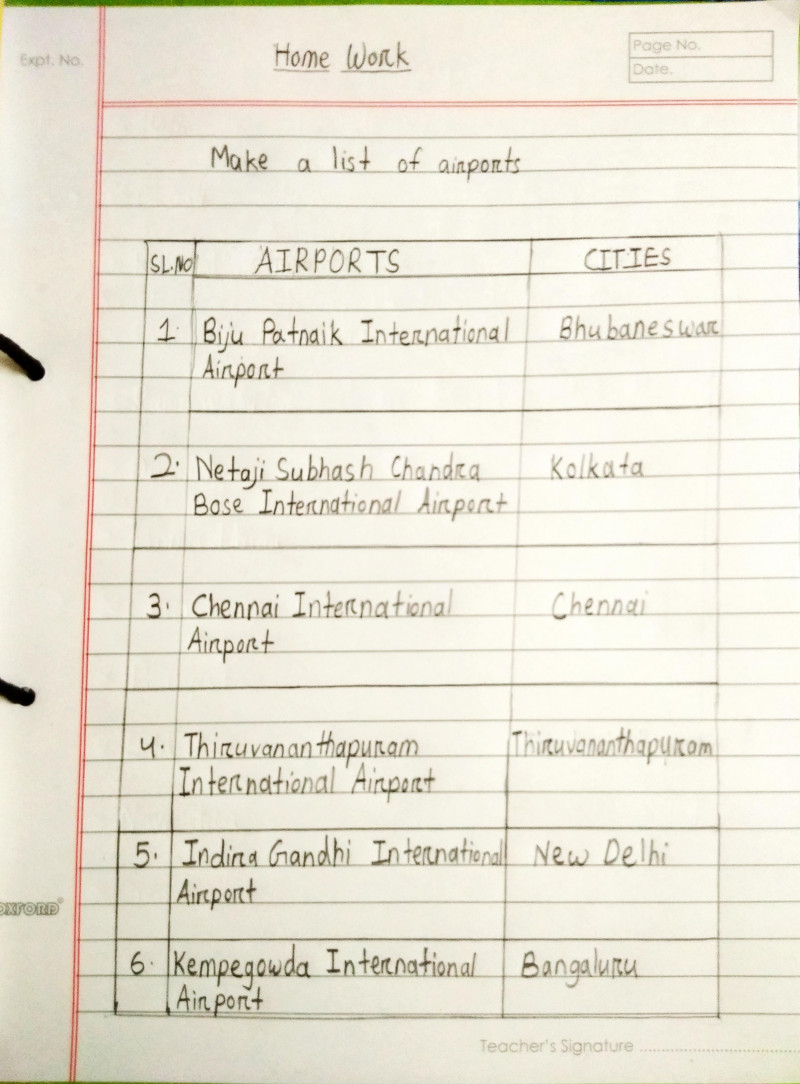 Expt. No.
Home Work
Page No.
Date.
Make a list of airports
SL.NO AIRPORTS CITIES
1. Biju Patnaik International Bhubaneswar
Airport
2. Netaji Subhash Chandra Kolkata
Bose International Airport
3. Chennai International Chennai
Airport
4. Thiruvananthapuram Thiruvananthapuram
International Airport
5. Indira Gandhi International New Delhi
Airport
OXFORD
6. Kempegowda International Bangaluru
Airport
Teacher's Signature